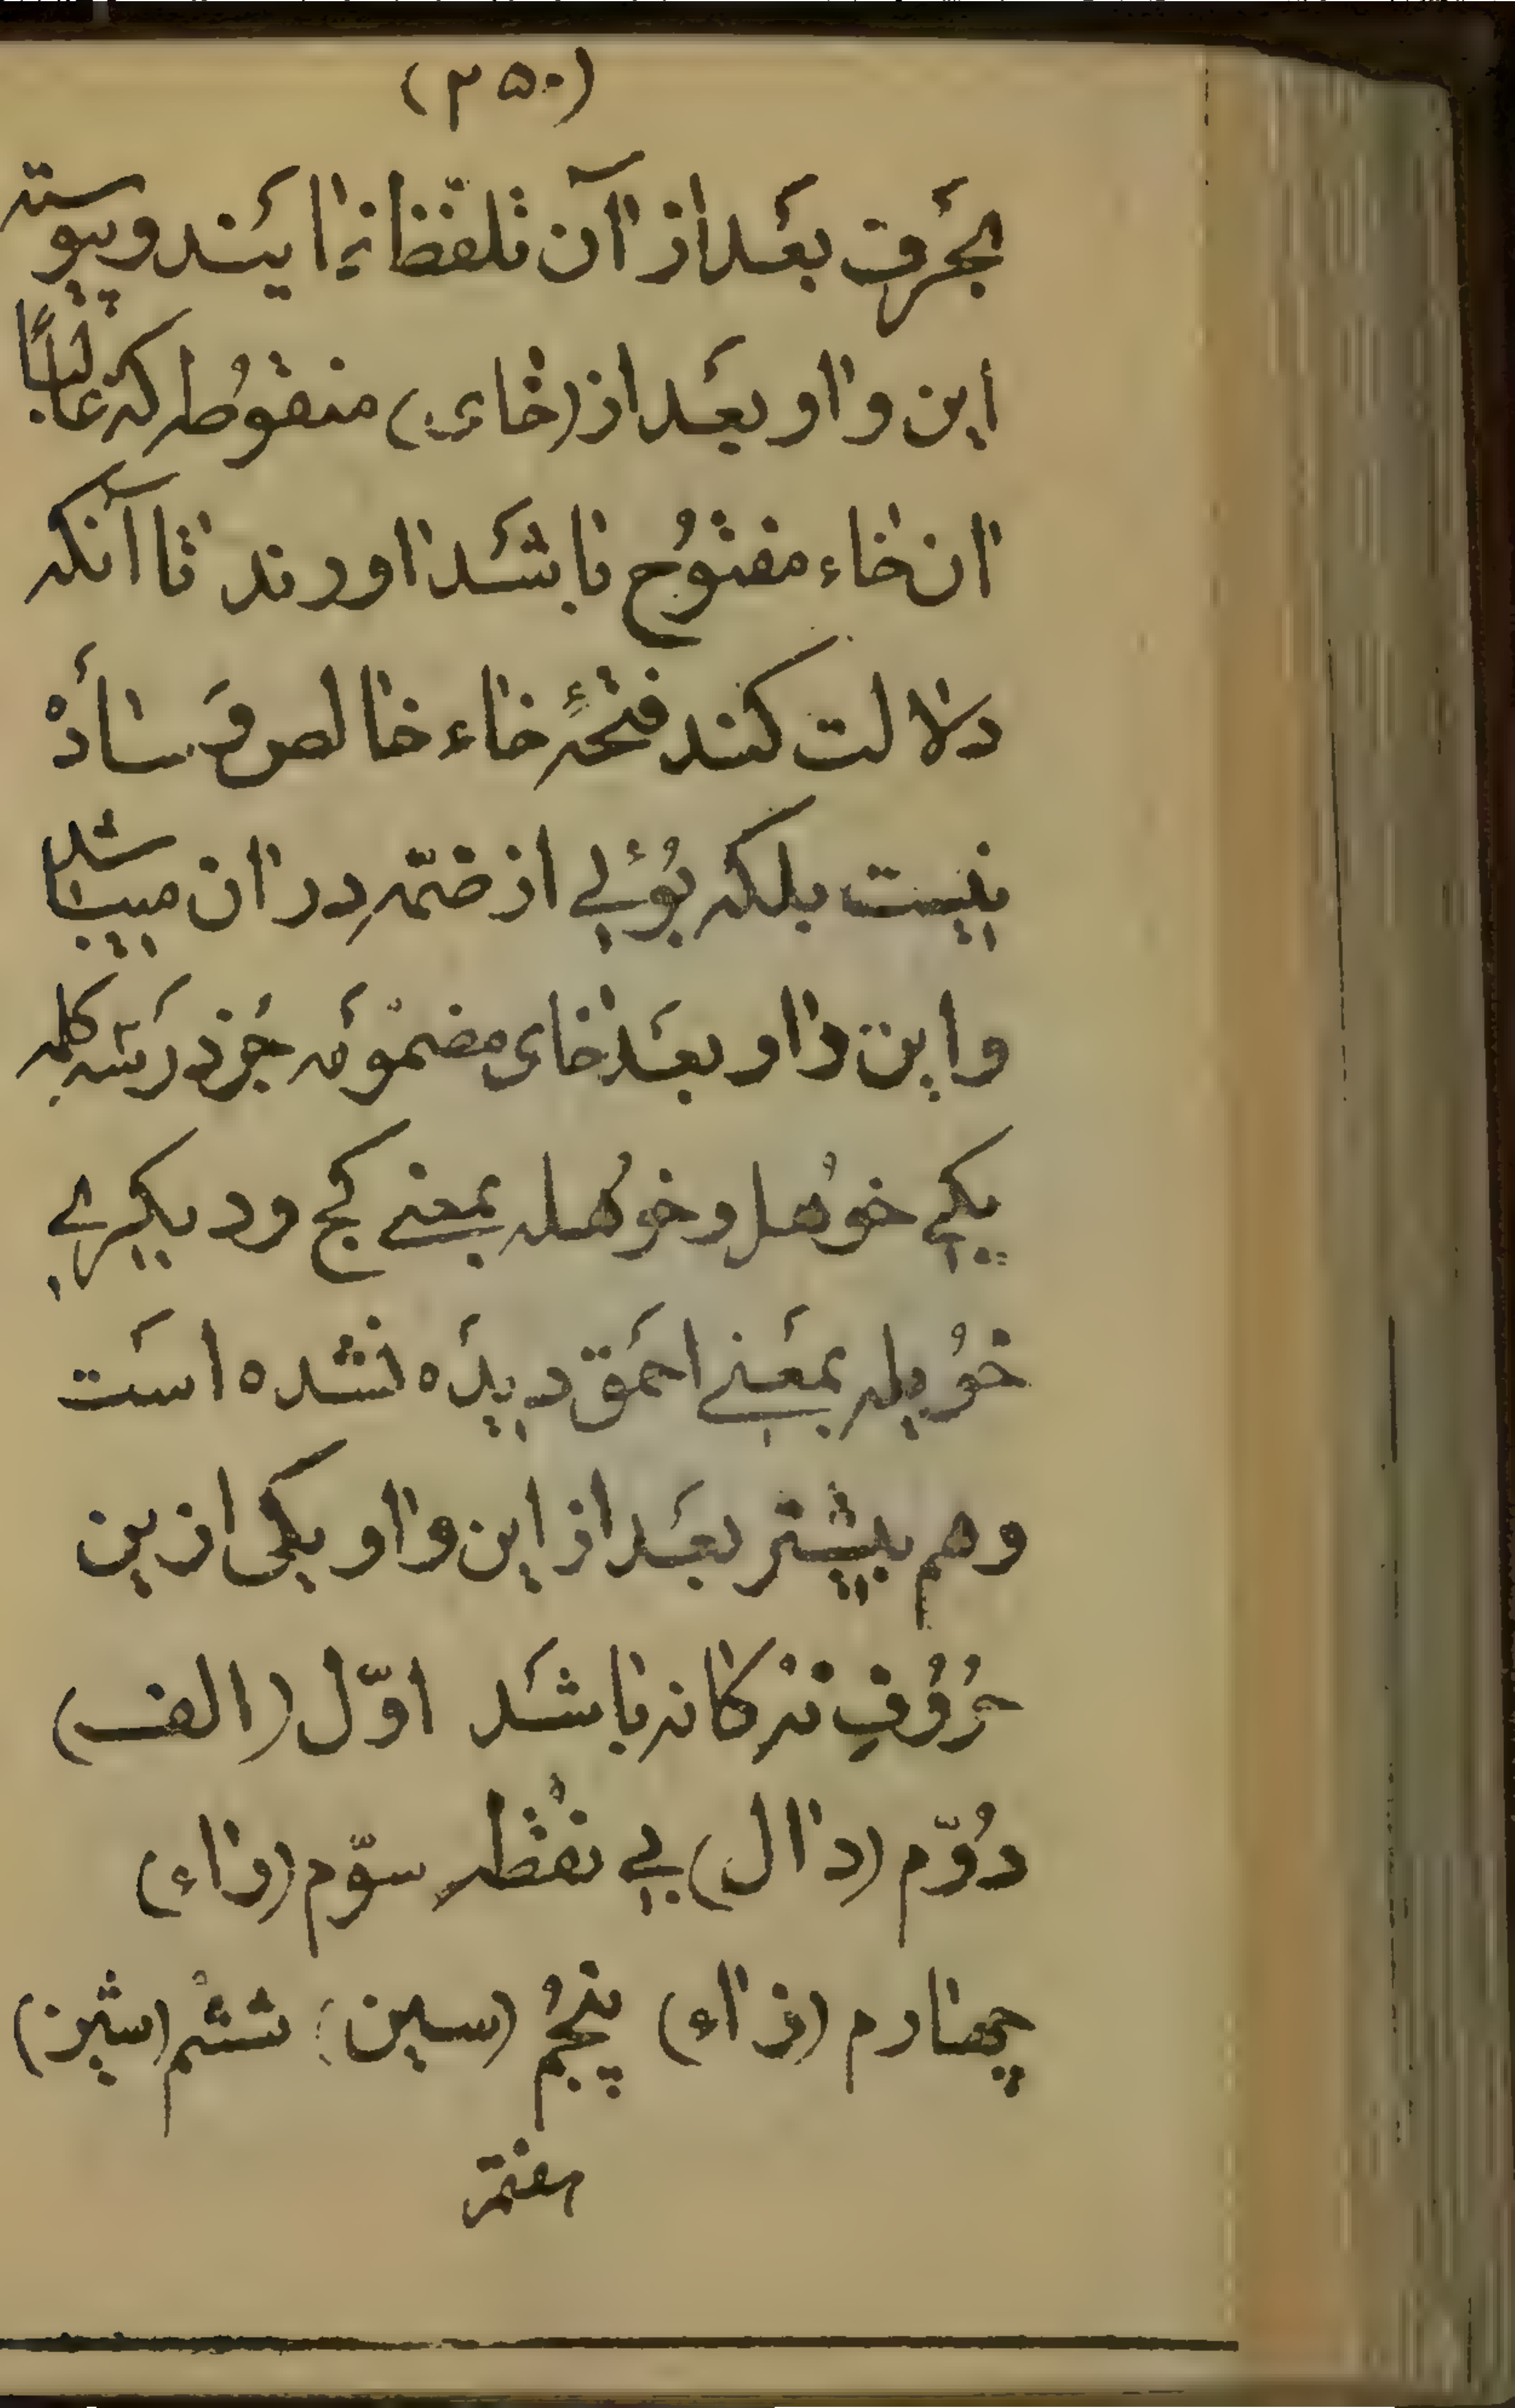 (۳۵۰)
بحَرف بعَد از اۤن تلفّظ انمٰایَند و پیوسته
این وٰاو بعَد از (خٰای) منقوُطه که غالباً
اٰن خٰاء مفتوُح بٰاشَد اٰورند تٰا اۤنکه
دلاٰلت کند فتحهٔ خٰاء خٰالص وَ سٰادَهْ
نیست بلکه بوُئے از ضمّه در اٰن میبٰاشد
و این وٰاو بعَد خٰای مضموُمَه جُز در سَه کلمه
یکے خوُهل و خوُهله بمعنے کج و دیگرے
خوُیله بمعَنے احمَق دیدَه نشده است
و هم بیشتر بعَد از این وٰاو یکی ازین
حُروُف نُه گانه بٰاشَد اوّل (الف)
دُوّم (دٰال) بے نقُطه سوّم (رٰاء)
چهٰارم (زٰاء) پنجُم (سین) ششُم (شین)
هفتم